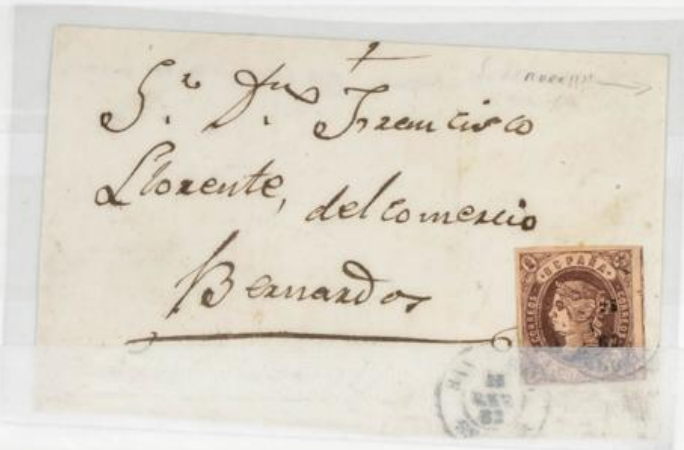 Sr. Dn. Francisco
Llorente, del comercio
Bernardos
ESPAÑA
CORREOS CORREOS